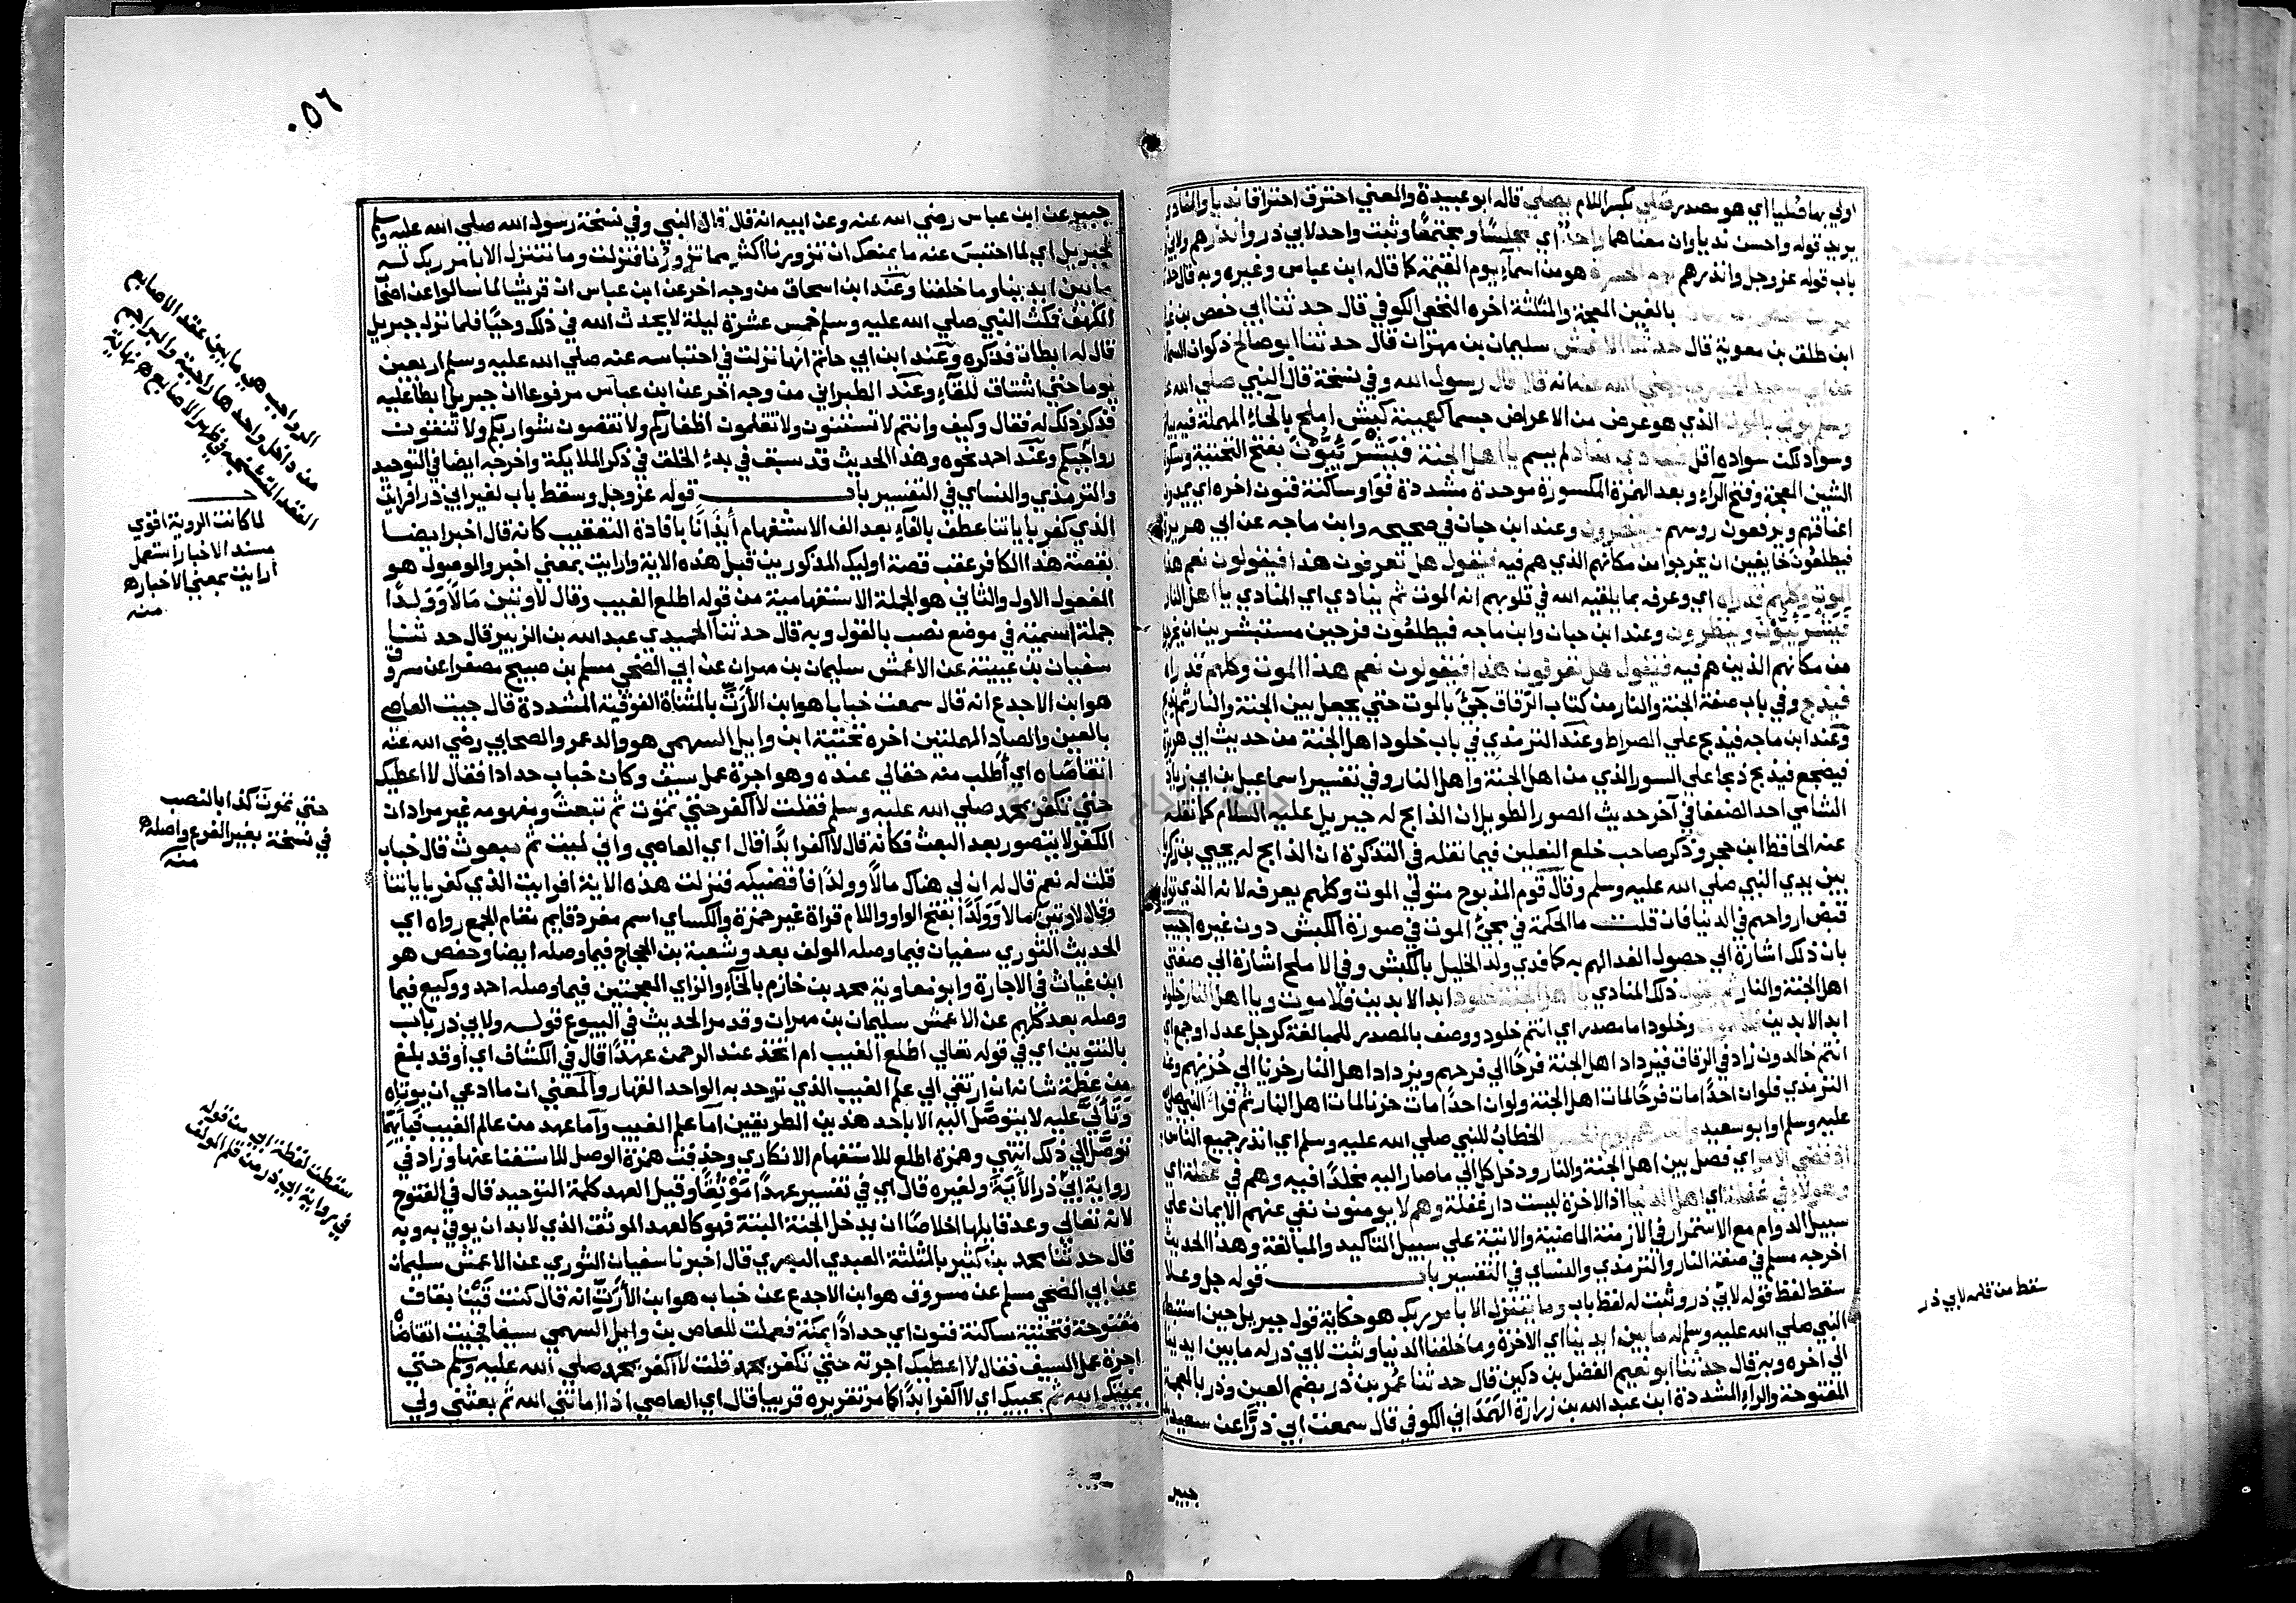 اولي بها صُليا اي هو مصدر صلي بكسر اللام يصلي قاله ابو عبيدة والمعني احترق احتراقا نديا والنادي
يريد قوله واحسن نديا وان معناهما واحدٌ اي مجلسًا ومجتمعًا وثبت واحد لابي ذر وانذرهم ولابي
باب قوله عز وجل وانذرهم يوم الحسرة هو من اسمآء يوم القيمة كما قاله ابن عباس وغيره وبه قال حد
بالغين المعجمة والمثلثة اخره النخعي الكوفي قال حدثنا ابي حفص بن غيا
ابن طلق بن معوية قال حدثنا الاعمش سليمان بن مهران قال حدثنا ابو صالح ذكوان السما
رضي الله عنه انه قال قال رسول الله وفي نسخة قال النبي صلي الله عـ
وسلم يوتي بالموت الذي هو عرض من الاعراض جسما كهيئة كبش املح بالحاء المهملة فيه بيا
وسواد لكن سواده اقل فينادي مناد لم يسم يا اهل الجنة فيشرئبون بفتح التحتية وسكو
الشين المعجمة وفتح الرآء وبعد الهمزة المكسورة موحدة مشددة فواو ساكنة فنون اخره اي يمدون
اعناقهم ويرفعون روسهم وينظرون وعند ابن حبان في صحيحه وابن ماجه عن ابي هريرة
فيطلعون خايفين ان يخرجوا من مكانهم الذي هم فيه فيقول هل تعرفون هذا فيقولون نعم هذا
الموت وكلهم قد راه اي وعرفه بما يلقيه الله في قلوبهم انه الموت ثم ينادي اي المنادي يا اهل النار
فيشرئبون وينظرون وعند ابن حبان وابن ماجه فيطلعون فرحين مستبشرين ان يخرجوا
من مكانهم الذين هم فيه فيقول هل تعرفون هذا فيقولون نعم هذا الموت وكلهم قد راه
فيذبح وفي باب صفة الجنة والنار من كتاب الرقاق جيئ بالموت حتي يجعل بين الجنة والنار ثم يذبح
وعند ابن ماجه فيذبح علي الصراط وعند الترمذي في باب خلود اهل الجنة من حديث ابي هريرة
فيضجع فيذبح ذبحا علي السور الذي من اهل الجنة واهل النار وفي تفسير اسماعيل بن ابي زياد
الشامي احد الضعفا في آخر حديث الصور الطويل ان الذابح له جبريل عليه السلام كما نقله
عنه الحافظ ابن حجر وذكر صاحب خلع النعلين فيما نقله في التذكرة ان الذابح له يحيي بن زكريا
بين يدي النبي صلي الله عليه وسلم وقال قوم المذبوح متولي الموت وكلهم يعرفه لانه الذي تولي
قبض ارواحهم في الدنيا فان قلت ما الحكمة في مجيئ الموت في صورة الكبش دون غيره اجيب
بان ذلك اشارة الي حصول الفدا لهم به كما فدي ولد الخليل بالكبش وفي الاملح اشارة الي صفتي
اهل الجنة والنار ثم يقول ذلك المنادي يا اهل الجنة خلود ابد الابدين فلا موت ويا اهل النار خلود
ابد الابدين وخلود اما مصدر اي انتم خلود ووصف بالمصدر للمبالغة كرجل عدل او جمع اي
انتم خالدون زاد في الرقاق فيزداد اهل الجنة فرحًا الي فرحهم ويزداد اهل النار حزنا الي حُزنهم وعند
الترمذي فلوان احدًا مات فرحًا لمات اهل الجنة ولوان احدًا مات حزنا لمات اهل النار ثم قرا النبي صلي
عليه وسلم او ابو سعيد الخطاب للنبي صلي الله عليه وسلم اي انذر جميع الناس
اذ قضي الامر اي فصل بين اهل الجنة والنار ودخل كل الي ما صار اليه مخلدًا فيه وهم في غفلة اي
وهولاء في غفلة اي اهل الدنيا اذ الاخرة ليست دار غفلة وهم لا يومنون نفي عنهم الايمان علي
سبيل الدوام مع الاستمرار في الازمنة الماضية والاتية علي سبيل التاكيد والمبالغة وهذا الحديث
اخرجه مسلم في صفة النار والترمذي والنساي في التفسير باب قوله جل وعلا
سقط لفظ قوله لابي ذر وثبت له لفظ باب وما نتنزل الا بامر ربك هو حكاية قول جبريل حين استبطا
النبي صلي الله عليه وسلم له ما بين ايدينا اي الاخرة وما خلفنا الدنيا وثبت لابي ذر له ما بين ايدينا
الي اخره وبه قال حدثنا ابو نعيم الفضل بن دكين قال حدثنا عُمر بن ذر بضم العين وذر بالمعجمة
المفتوحة والرآء المشددة ابن عبد الله بن زرارة الهمداني الكوفي قال سمعت ابي ذرًّا عن سعيد بن
جبير
سقط من قلمه لابي ذر
٥٦٠
جبير عن ابن عباس رضي الله عنه وعن ابيه انه قال قال النبي وفي نسخة رسول الله صلي الله عليه وسلم
لجبريل اي لما احتبس عنه ما يمنعك ان تزورنا اكثر مما تزورُنا فنزلت وما نتنزل الا بامر ربك له
ما بين ايدينا وما خلفنا وعند ابن اسحاق من وجه اخر عن ابن عباس ان قريشا لما سالوا عن اصحاب
الكهف فمكث النبي صلي الله عليه وسلم خمس عشرة ليلة لا يحدث الله في ذلك وحيًا فلما نزل جبريل
قال له ابطات فذكره وعند ابن ابي حاتم انها نزلت في احتباسه عنه صلي الله عليه وسلم اربعين
يوما حتي اشتاق للقآء وعند الطبراني من وجه اخر عن ابن عباس مرفوعا ان جبريل ابطا عليه
فذكر ذلك له فقال وكيف وانتم لا تستنون ولا تقلمون اظفاركم ولا تقصون شواربكم ولا تنقون
رواجبكم وعند احمد نحوه وهذا الحديث قد سبق في بدء الخلق في ذكر الملايكة واخرجه ايضا في التوحيد
والترمذي والنساي في التفسير باب قوله عز وجل وسقط باب لغير ابي ذر افرايت
الذي كفر باياتنا عطف بالفآء بعد الف الاستفهام أيذانًا بافادة التعقيب كانه قال اخبر ايضا
بقصة هذا الكافر عقب قصة اوليك المذكورين قبل هذه الاية وارايت بمعني اخبر والموصول هو
المفعول الاول والثاني هو الجملة الاستفهامية من قوله اطلع الغيب وقال لاوتين مَالًا وَوَلدًا
جملة اسمية في موضع نصب بالقول وبه قال حدثنا الحميدي عبد الله بن الزبير قال حدثنا
سفيان بن عيينة عن الاعمش سليمان بن مهران عن ابي الضحي مسلم بن صبيح مصغرا عن مسروق
هو ابن الاجدع انه قال سمعت خبابا هو ابن الأرَتّ بالمثناة الفوقية المشددة قال جيت العاصي
بالعين والصاد المهملتين اخره تحتية ابن وايل السهمي هو والد عمرو الصحابي رضي الله عنه
اتقاضاه اي اَطلب منه حقا لي عنده وهو اجرة عمل سيف وكان خباب حدادا فقال لا اعطيك
حتي تكفر بمحمد صلي الله عليه وسلم فقلت لا اكفر حتي تموت ثم تبعث ومفهومه غير مراد ان
الكفر لا يتصور بعد البعث فكانه قال لا اكفر ابدًا قال اي العاصي واني لميت ثم مبعوث قال خباب
قلت له نعم قال له ان لي هناك مالًا وولدًا فاقضيكه فنزلت هذه الاية افرايت الذي كفر باياتنا
وقال لاوتين مالا وَوَلَدًا بفتح الواو واللام قراة غير حمزة والكساي اسم مفرد قايم مقام الجمع رواه اي
الحديث الثوري سفيان فيما وصله المولف بعد وشعبة بن الحجاج فيما وصله ايضا وحفص هو
ابن غياث في الاجارة وابو معاوية محمد بن خازم بالخآء والزاي المعجمتين فيما وصله احمد ووكيع فيما
وصله بعد كلهم عن الاعمش سليمان بن مهران وقد مر الحديث في البيوع قوله ولابي ذر باب
بالتنوين اي في قوله تعالي اطلع الغيب ام اتخذ عند الرحمن عهدًا قال في الكشاف اي اوقد بلغ
من عظمة شانه ان ارتقي الي علم الغيب الذي توحد به الواحد القهار والمعني ان ما ادعي ان يوتاه
وَتَأَلّي عليه لا يتوصل اليه الا باحد هذين الطريقين اما علم الغيب واما عهد من عالم الغيب فبايهما
توصل الي ذلك انتهي وهمزة اطلع للاستفهام الانكاري وحذفت همزة الوصل للاستغنا عنها وزاد في
رواية ابي ذر الأيةَ ولغيره قال اي في تفسير عهدًا مَوْثِقًا وقيل العهد كلمة التوحيد قال في الفتوح
لانه تعالي وعد قايلها اخلاصًا ان يدخل الجنة البتة فهو كالعهد الموثق الذي لابد ان يوفي به وبه
قال حدثنا محمد بن كثير بالمثلثة العبدي البصري قال اخبرنا سفيان الثوري عن الاعمش سليمان
عن ابي الضحي مسلم عن مسروق هو ابن الاجدع عن خباب هو ابن الأرَتّ انه قال كنت قَينًا بقاف
مفتوحة فتحتية ساكنة فنون اي حدادًا بمكة فعملت للعاص بن وايل السهمي سيفا فجيت اتقاضاه
اجرة عمل السيف فقال لا اعطيك اجرته حتي تكفر بمحمد قلت لا اكفر بمحمد صلي الله عليه وسلم حتي
يميتك الله ثم يحييك اي لا اكفر ابدًا كما مر تقريره قريبا قال اي العاصي اذا اماتني الله ثم بعثني ولي
الرواجب هي ما بين عقد الاصابع
من داخل واحدها راجبة والبراجم
العقد المتشنجة في ظهر الاصابع هـ نهاية
لما كانت الروية اقوي
مسند الاخبار استعمل
ارايت بمعني الاخبار هـ
منه
حتي تموتَ كذا بالنصب
في نسخة بغير الفرع واصله هـ
منه
سقطت لفظة ابي من قوله
في رواية ابي ذر من قلم المولف